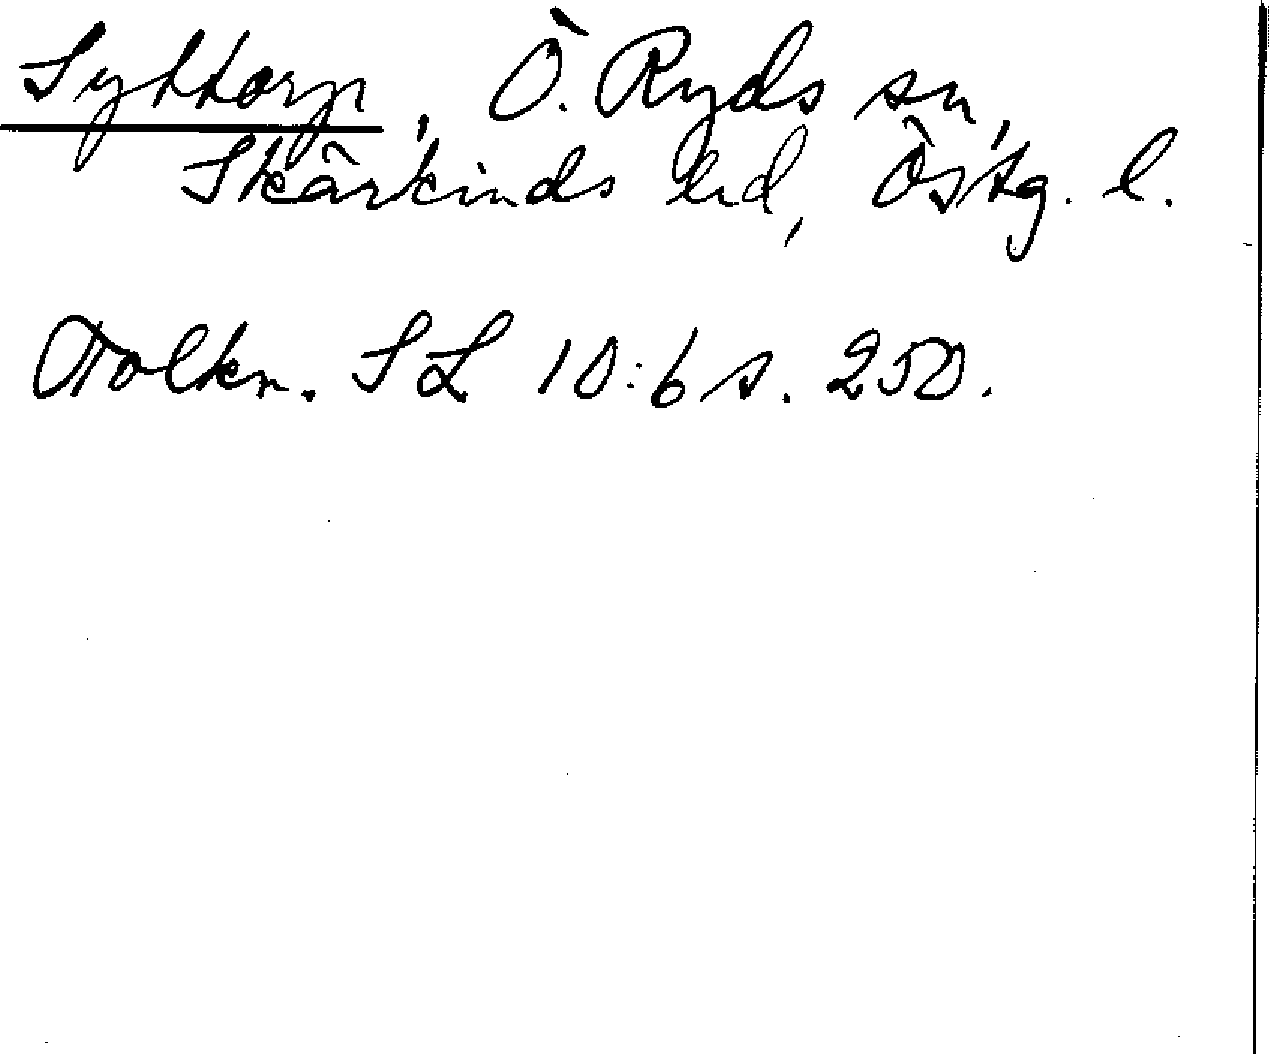 Syttorp, Ö. Ryds sn,
Skärkinds hd, Östg. l.
Tolkn. SL 10:6 s. 250.